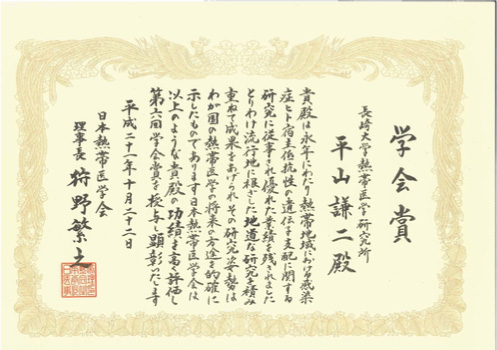 学会賞
長崎大学熱帯医学研究所
平山謙二殿
貴殿は永年にわたり熱帯地域における感染
症とヒト宿主抵抗性の遺伝子支配に関する
研究に従事され優れた業績を残されました
とりわけ流行地に根ざした地道な研究を積み
重ねて成果をあげられその研究姿勢は
わが国の熱帯医学の将来の方途を的確に
示したものであります日本熱帯医学会は
以上のような貴殿の功績を高く評価し
第六回学会賞を授与し顕彰いたします
平成二十一年十月二十二日
日本熱帯医学会
理事長 狩野繁之